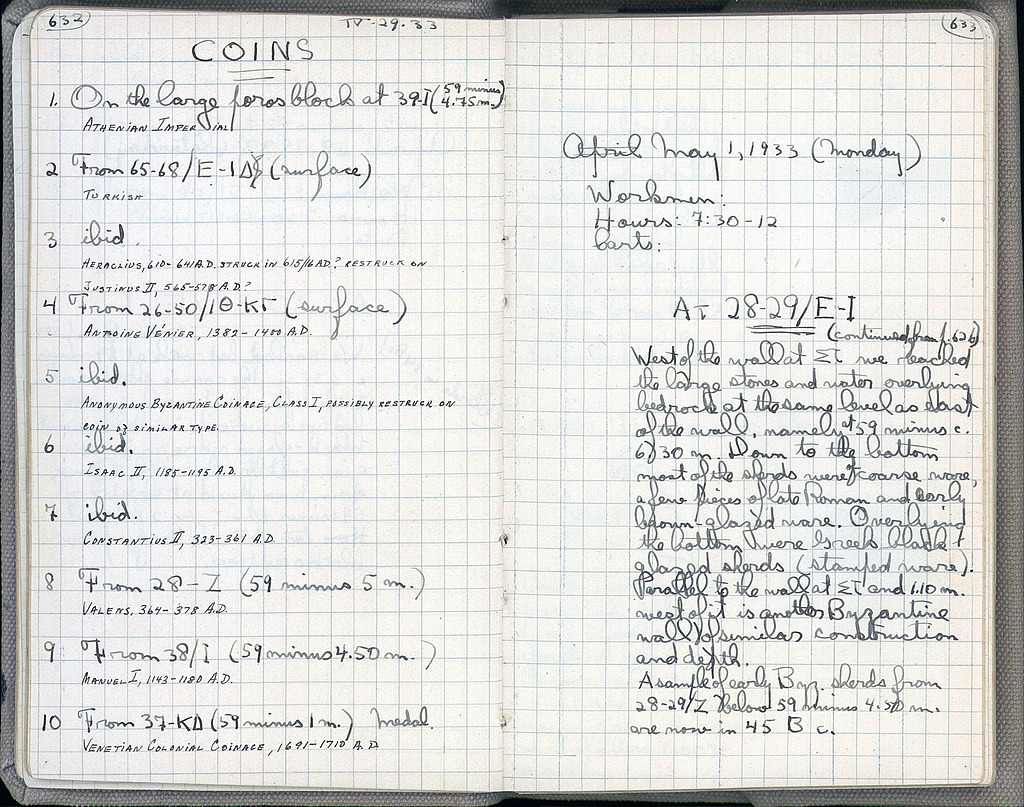 632
IV-29-33
COINS
1. On the large poros block at 39-I (59 minus 4.75 m.)
ATHENIAN IMPERIAL
2 From 65-68/E-IΔ (surface)
TURKISH
3 ibid.
HERACLIUS, 610-641 A.D. STRUCK IN 615/16 AD? RESTRUCK ON
JUSTINUS II, 565-578 A.D.?
4 From 26-50/IΘ-ΚΓ (surface)
ANTOINE VÉNIER, 1382-1400 A.D.
5 ibid.
ANONYMOUS BYZANTINE COINAGE, CLASS I, POSSIBLY RESTRUCK ON
COIN OF SIMILAR TYPE.
6 ibid.
ISAAC II, 1185-1195 A.D.
7 ibid.
CONSTANTIUS II, 323-361 A.D.
8 From 28-Z (59 minus 5 m.)
VALENS, 364-378 A.D.
9 From 38/I (59 minus 4.50 m.)
MANUEL I, 1143-1180 A.D.
10 From 37-ΚΔ (59 minus 1 m.) Medal.
VENETIAN COLONIAL COINAGE, 1691-1710 A.D.
633
April May 1, 1933 (Monday)
Workmen:
Hours: 7:30-12
Carts:
AT 28-29/E-I
(continued from p. 626)
West of the wall at ΣΤ we reached
the large stones and water overlying
bedrock at the same level as east
of the wall, namely at 59 minus c.
6.30 m. Down to the bottom
most of the sherds were coarse ware,
a few pieces of late Roman and early
brown-glazed ware. Overlying
the bottom were Greek black
glazed sherds (stamped ware).
Parallel to the wall at ΣΤ and 1.10 m.
west of it is another Byzantine
wall of similar construction
and depth.
A sample of early Byz. sherds from
28-29/Z below 59 minus 4.50 m.
are now in 45 B c.